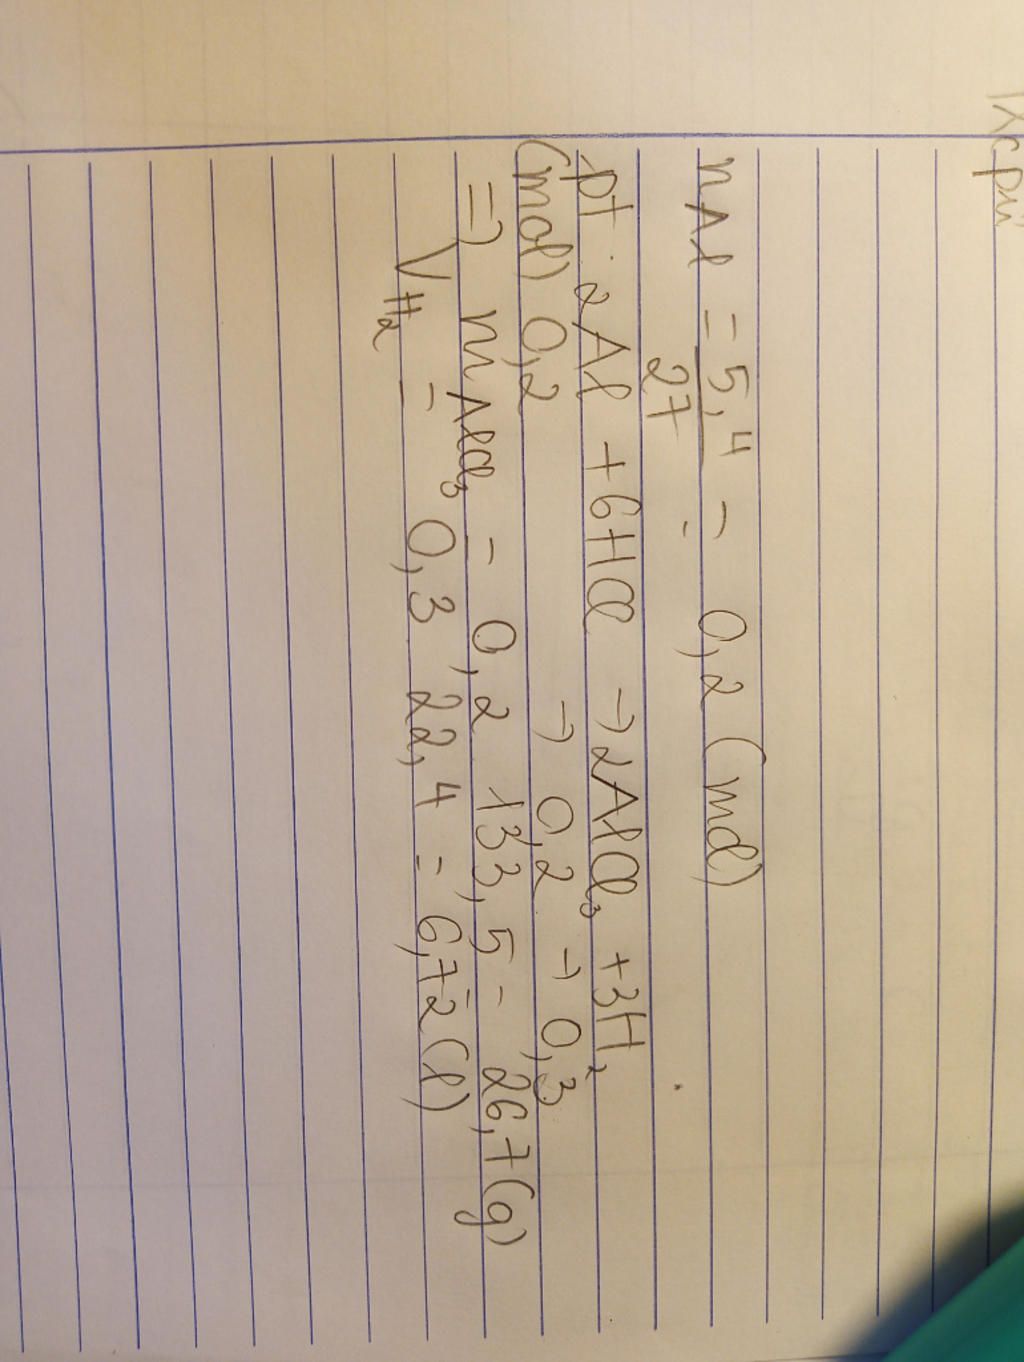 nAl = 5,4/27 = 0,2 (mol)
pt : 2Al + 6HCl → 2AlCl₃ + 3H₂
(mol) 0,2 → 0,2 → 0,3
=> mAlCl₃ = 0,2 133,5 = 26,7 (g)
V H₂ = 0,3 22,4 = 6,72 (l)